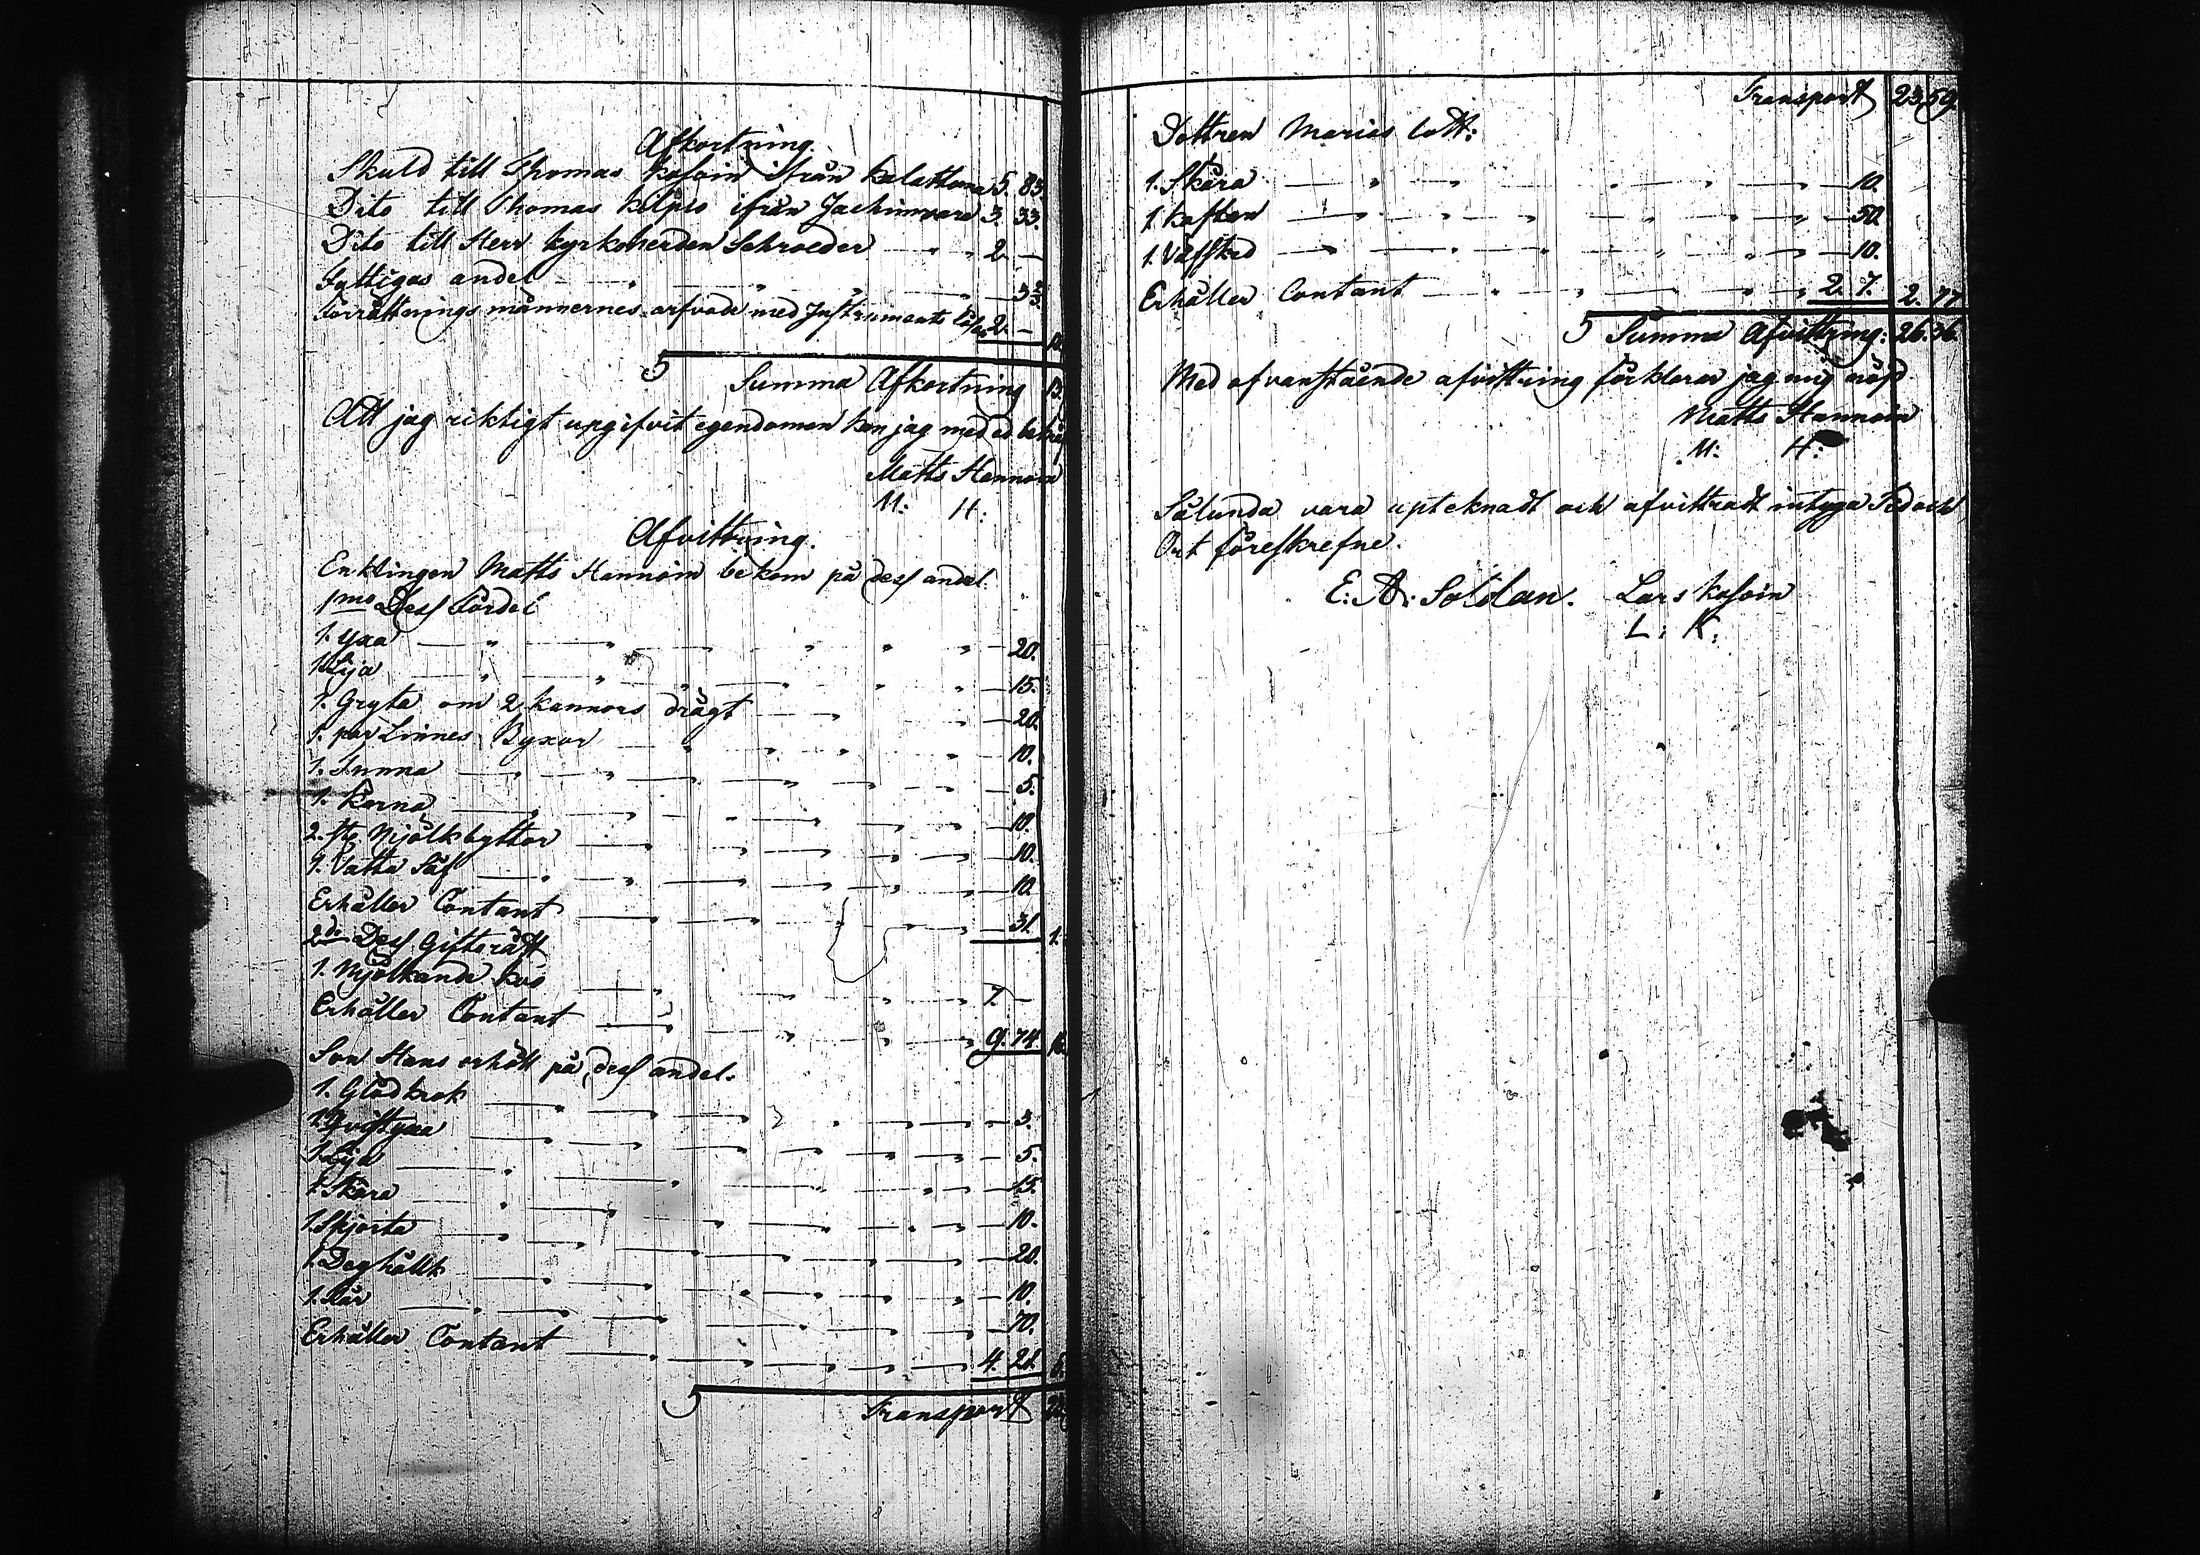 Afkortning.
Skuld till Thomas Kosoin ifrån Kalattoma 5. 83
Dito till Thomas Kilpio ifrån Jachimvara 3. 33.
Dito till Herr Kyrkoherden Schroeder 2. —
Fattigas andel
Förrättnings männernes arfvode med Instruments 2. —
Summa Afkortning 13.
Att jag riktigt upgifvit egendomen kan jag med ed
Matts Hannoin
M: H:
Afvittring.
Enklingen Matts Hannoin bekom på dess andel
1mo Dess Fördel
1. yxa 20.
1. Lja 15.
1. Gryta om 2 kannors drägt 20.
1. par Linnes Byxor 10.
1. Tunna 5.
1. Kärna 10.
2. st. Mjölkbyttor 10.
1. Vatta Säf 10.
Erhåller Contant 31. 1.
2do Dess Giftorätt
1. Mjölkande ko 7 —
Erhåller Contant 9. 74.
Son Hans erhöll på dess andel.
1. Glödkrok 3.
1. Qvistyxa 5.
1. Lja 15.
1. Skära 10.
1. Skjorta 20.
1. 10.
1. 70.
Erhåller Contant 4. 21. 6.
Transport
Transport 23. 59.
Dottren Marias lott:
1. Skära 10.
1. Kaftan 50.
1. Väfsked 10.
Erhåller Contant 2. 7. 2. 77
Summa Afvittring: 26. 36.
Med ofvanstående afvittring förklarar jag mig nöjd
Matts Hannoin
M: H:
Sålunda vara uptecknadt och afvittradt intyga Tid och
Ort föreskrefne.
E: A: Soldan. Lars Kosoin
L: K: